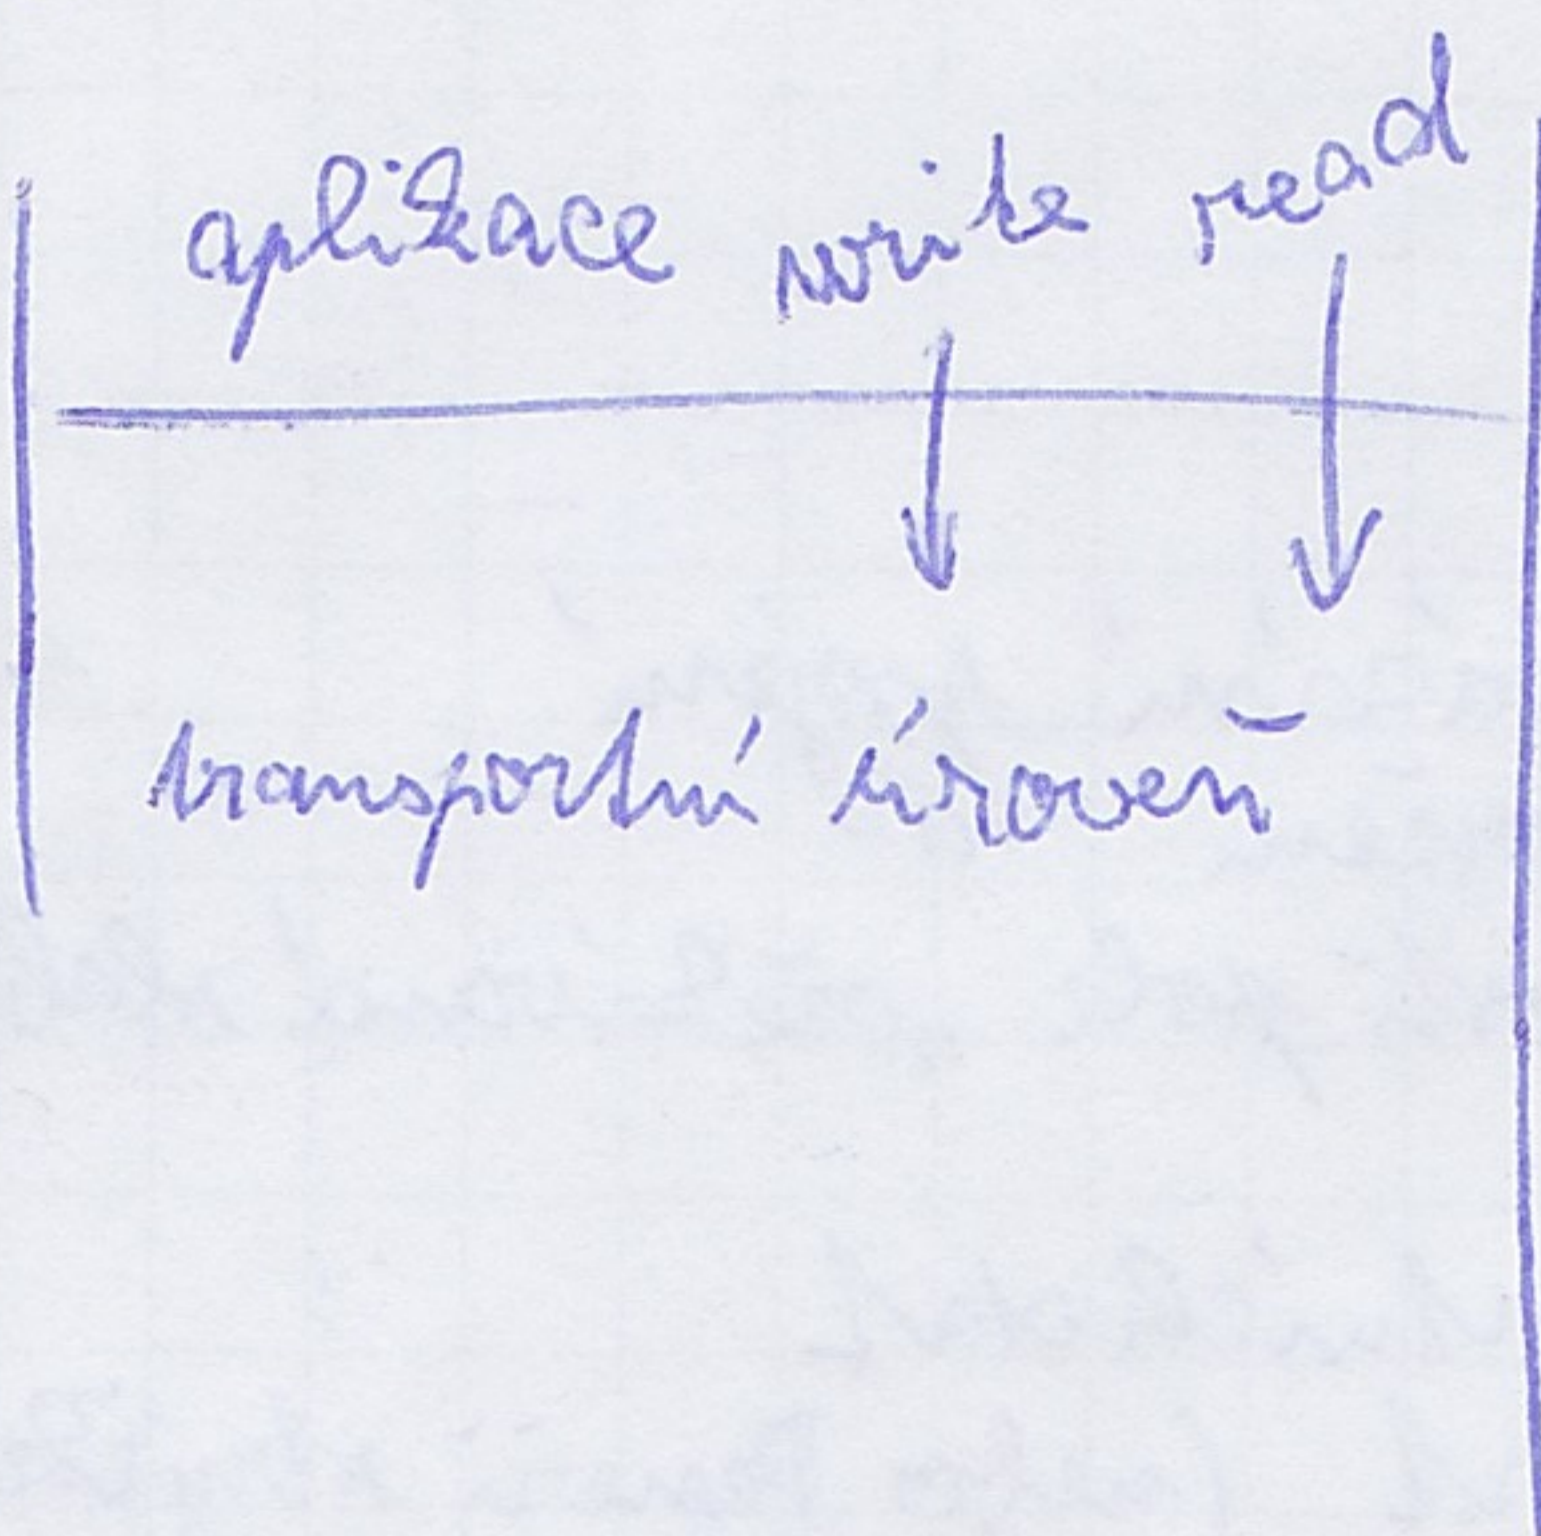 aplikace write read
transportní úroveň